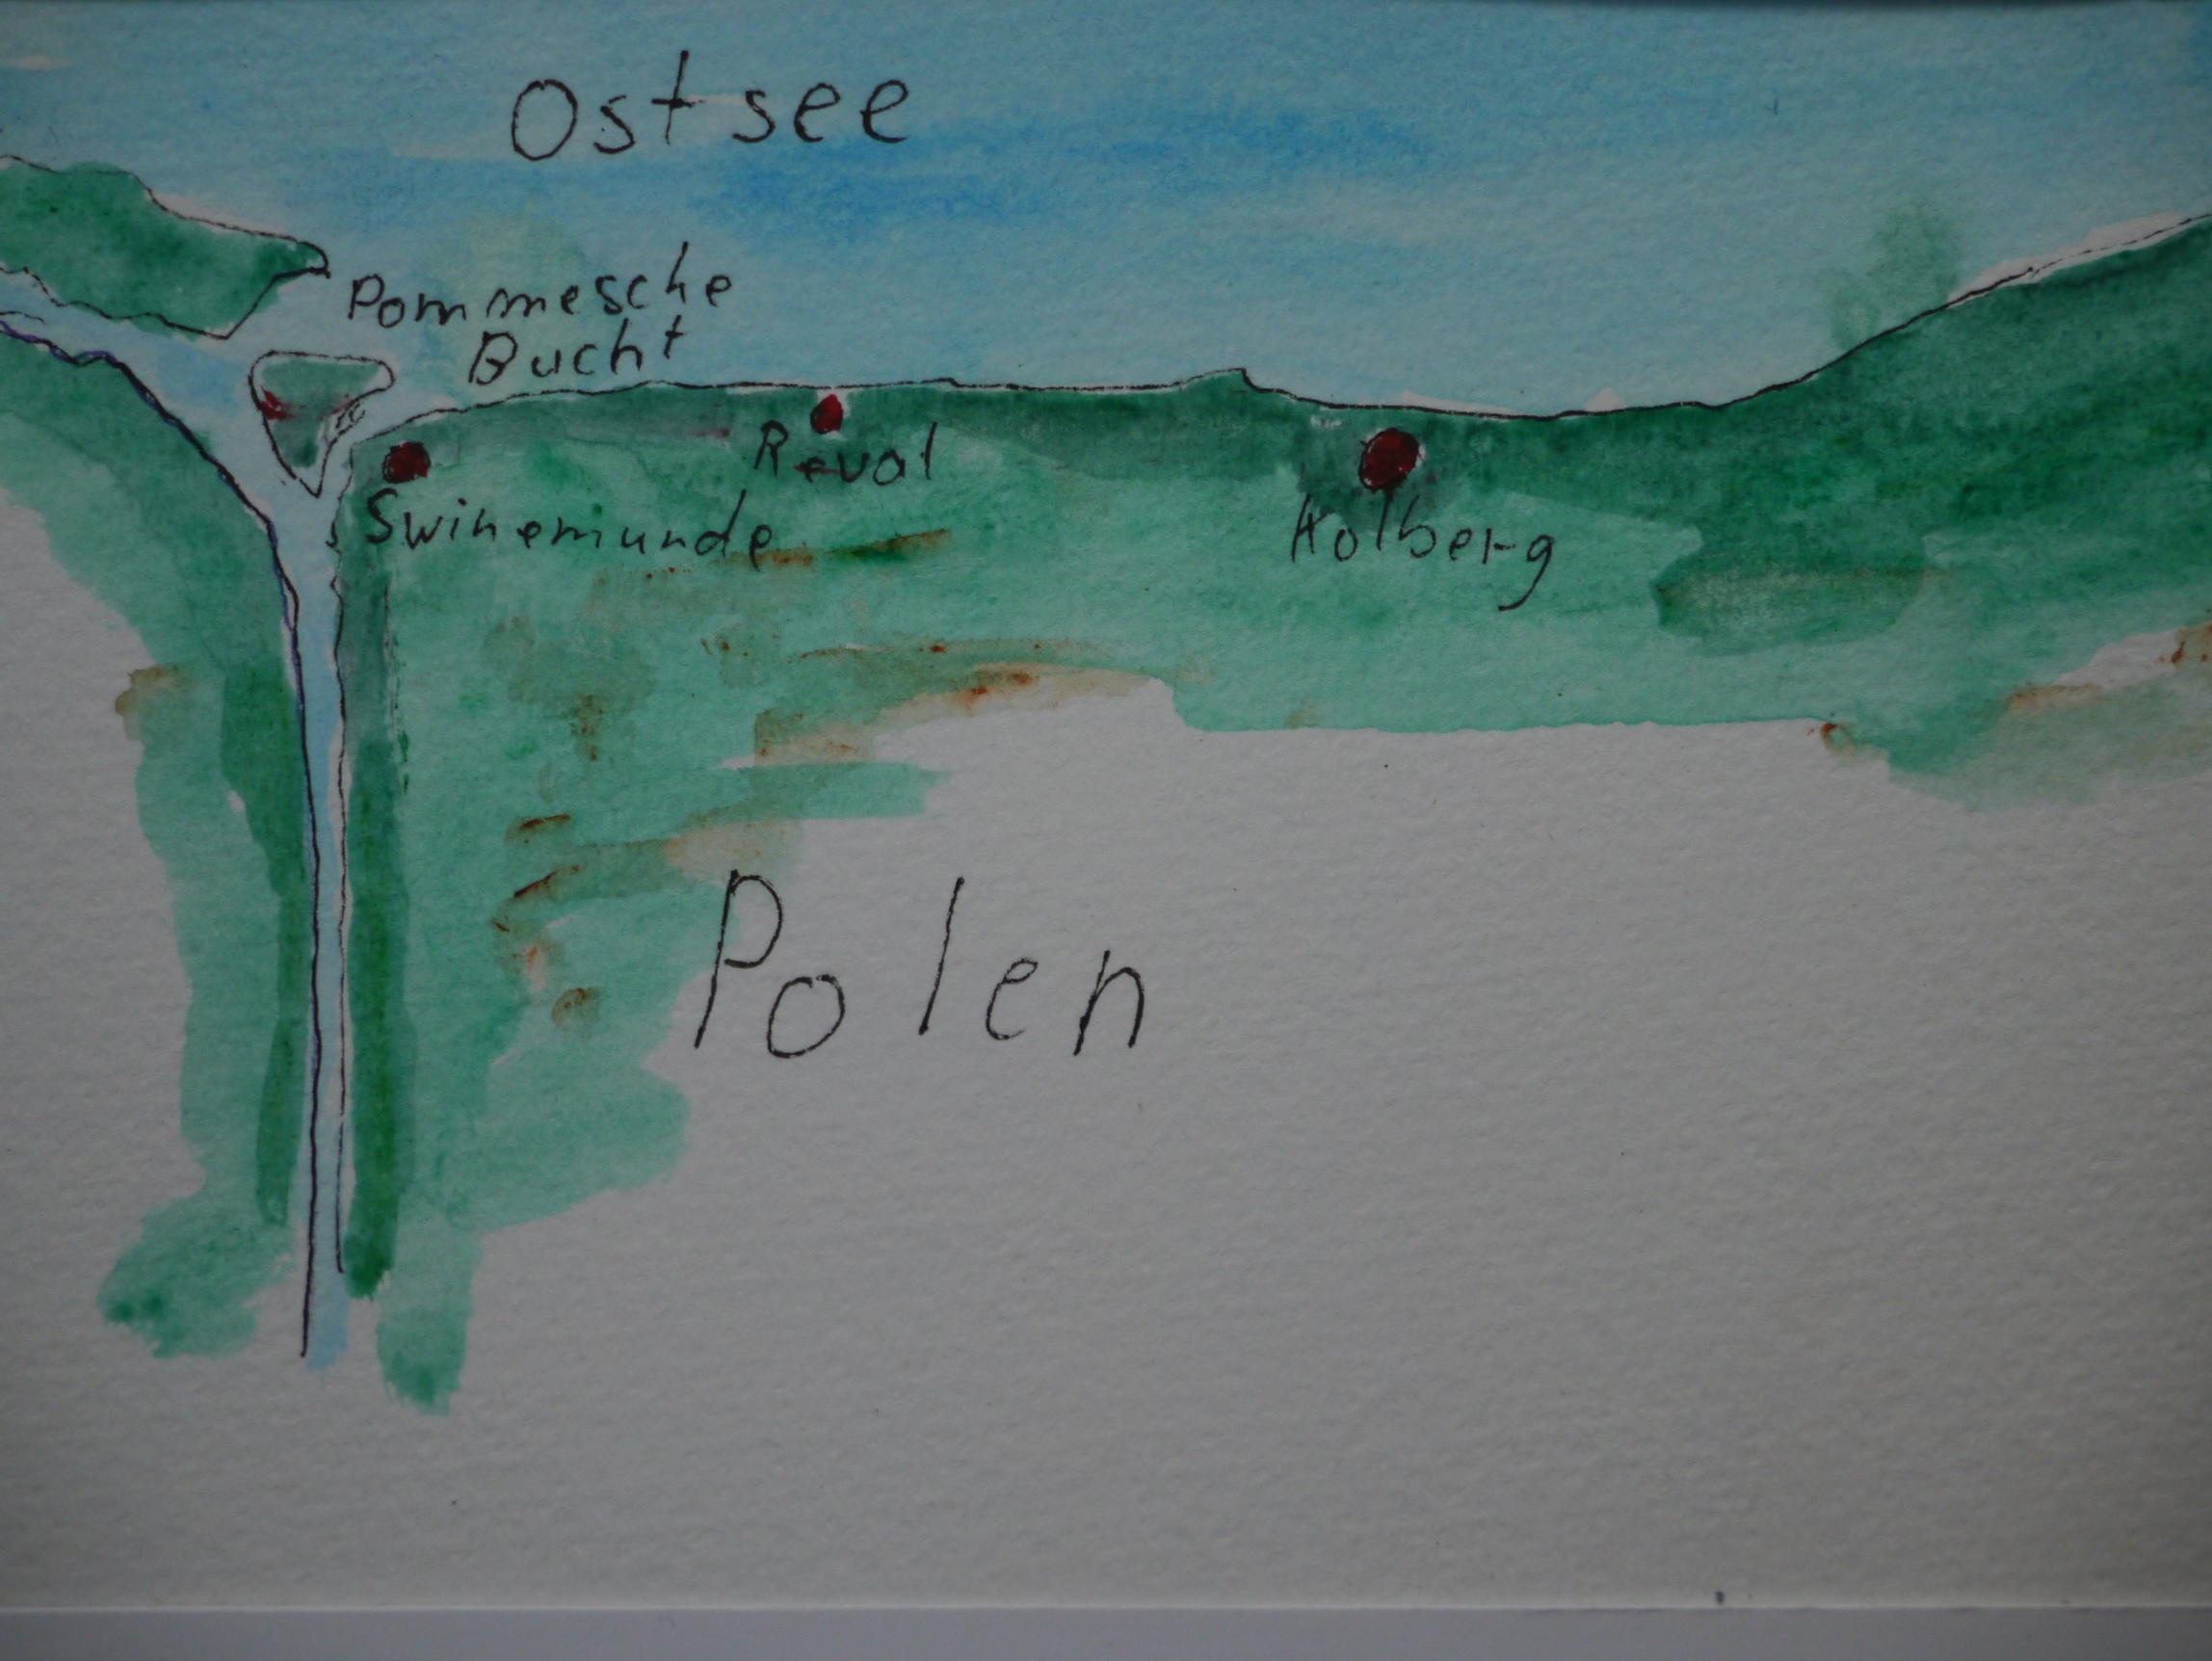 Ostsee
Pommesche
Bucht
Reval
Swinemunde
Kolberg
Polen